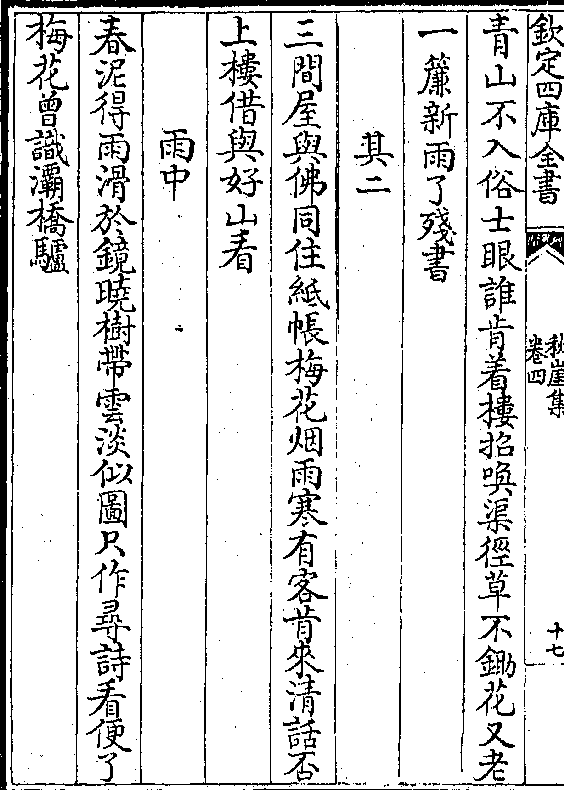 欽定四庫全書
秋崖集
卷四
十七
青山不入俗士眼誰肯着樓招喚渠徑草不鋤花又老
一簾新雨了殘書
其二
三間屋與佛同住紙帳梅花烟雨寒有客肯來清話否
上樓借與好山看
雨中
春泥得雨滑於鏡曉樹帶雲淡似圖只作尋詩看便了
梅花曾識灞橋驢